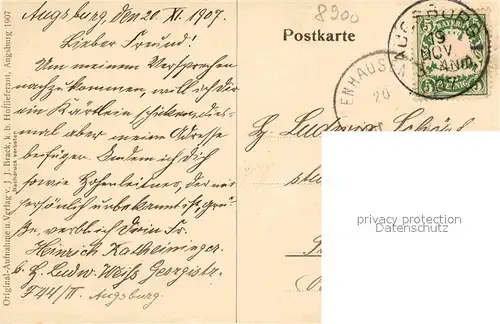 Augsburg, den 20. XI. 1907.
Lieber Freund!
Um meinem Versprechen
nachzukommen, will ich dir
ein Kärtlein schicken, dies-
mal aber meine Adresse
beifügen. Indem ich dich
sowie Hohenleitner, der mir
persönlich unbekannt ist grü-
ße, verbleibt Dein Fr.
Heinrich Katheininger
b. H. Ludw. Weiß Georgistr.
F44/II. Augsburg.
Original-Aufnahme u. Verlag v. J. J. Brack, k. b. Hoflieferant, Augsburg 1907
8900
Postkarte
BAYERN
5 PFENNIG 5
AUGSBURG
19
NOV
ENHAUSEN
20
H. Ludwig
privacy protection
watermark